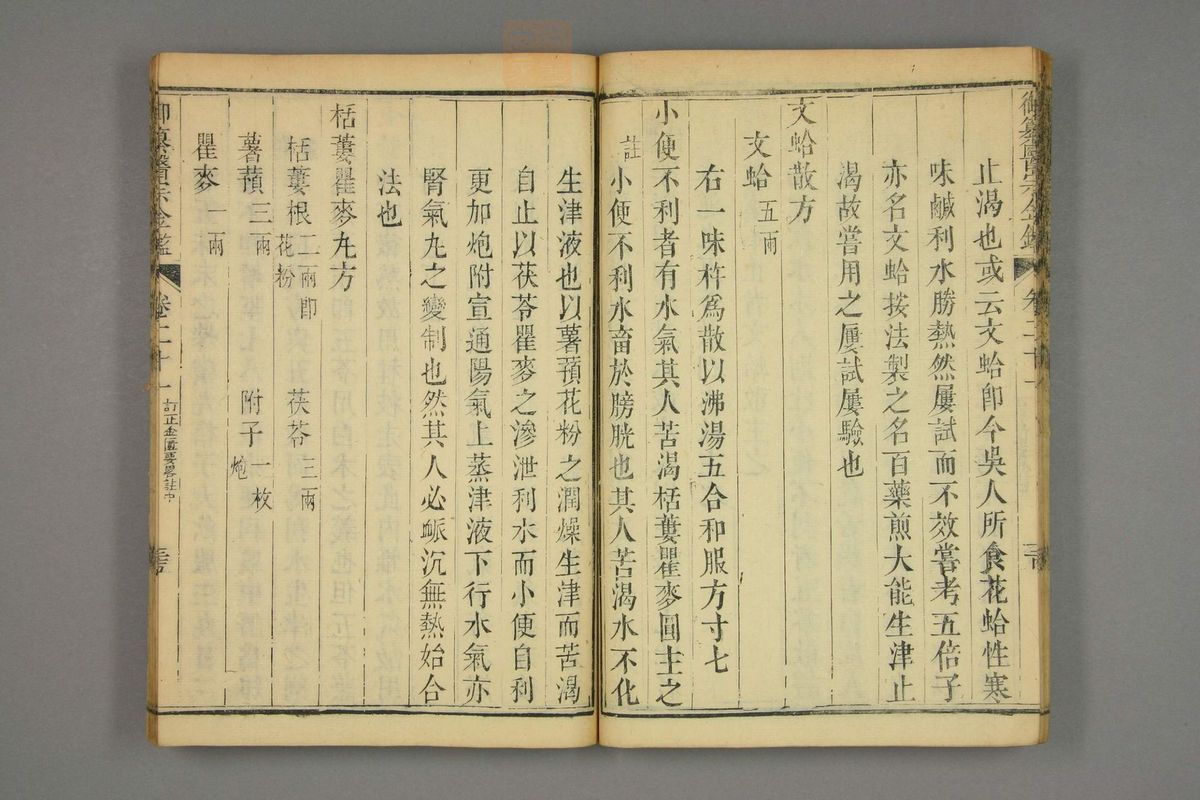 御纂醫宗金鑑 卷二十一
止渴也或云文蛤卽今吳人所食花蛤性寒
味鹹利水勝熱然屢試而不效嘗考五倍子
亦名文蛤按法製之名百藥煎大能生津止
渴故嘗用之屢試屢驗也
文蛤散方
文蛤五兩
右一味杵爲散以沸湯五合和服方寸七
小便不利者有水氣其人苦渴栝蔞瞿麥圓主之
註小便不利水畜於膀胱也其人苦渴水不化
生津液也以薯蕷花粉之潤燥生津而苦渴
自止以茯苓瞿麥之滲泄利水而小便自利
更加炮附宣通陽氣上蒸津液下行水氣亦
腎氣丸之變制也然其人必脈沉無熱始合
法也
栝蔞瞿麥丸方
栝蔞根二兩卽花粉 茯苓三兩
薯蕷三兩 附子一枚炮
瞿麥一兩
御纂醫宗金鑑 卷二十一 訂正金匱要畧註中